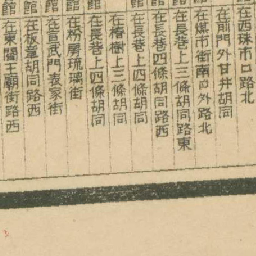 在西珠市口路北
館 在前門外甘井胡同
館 在爊市街南口外路北
館 在長巷上三條胡同路東
館 在長巷下四條胡同路西
館 在長巷上四條胡同
館 在椿樹上三條胡同
館 在長巷上四條胡同
館 在粉房琉璃街
館 在宣武門袁家街
館 在板章胡同路西
館 在東關王廟街路西